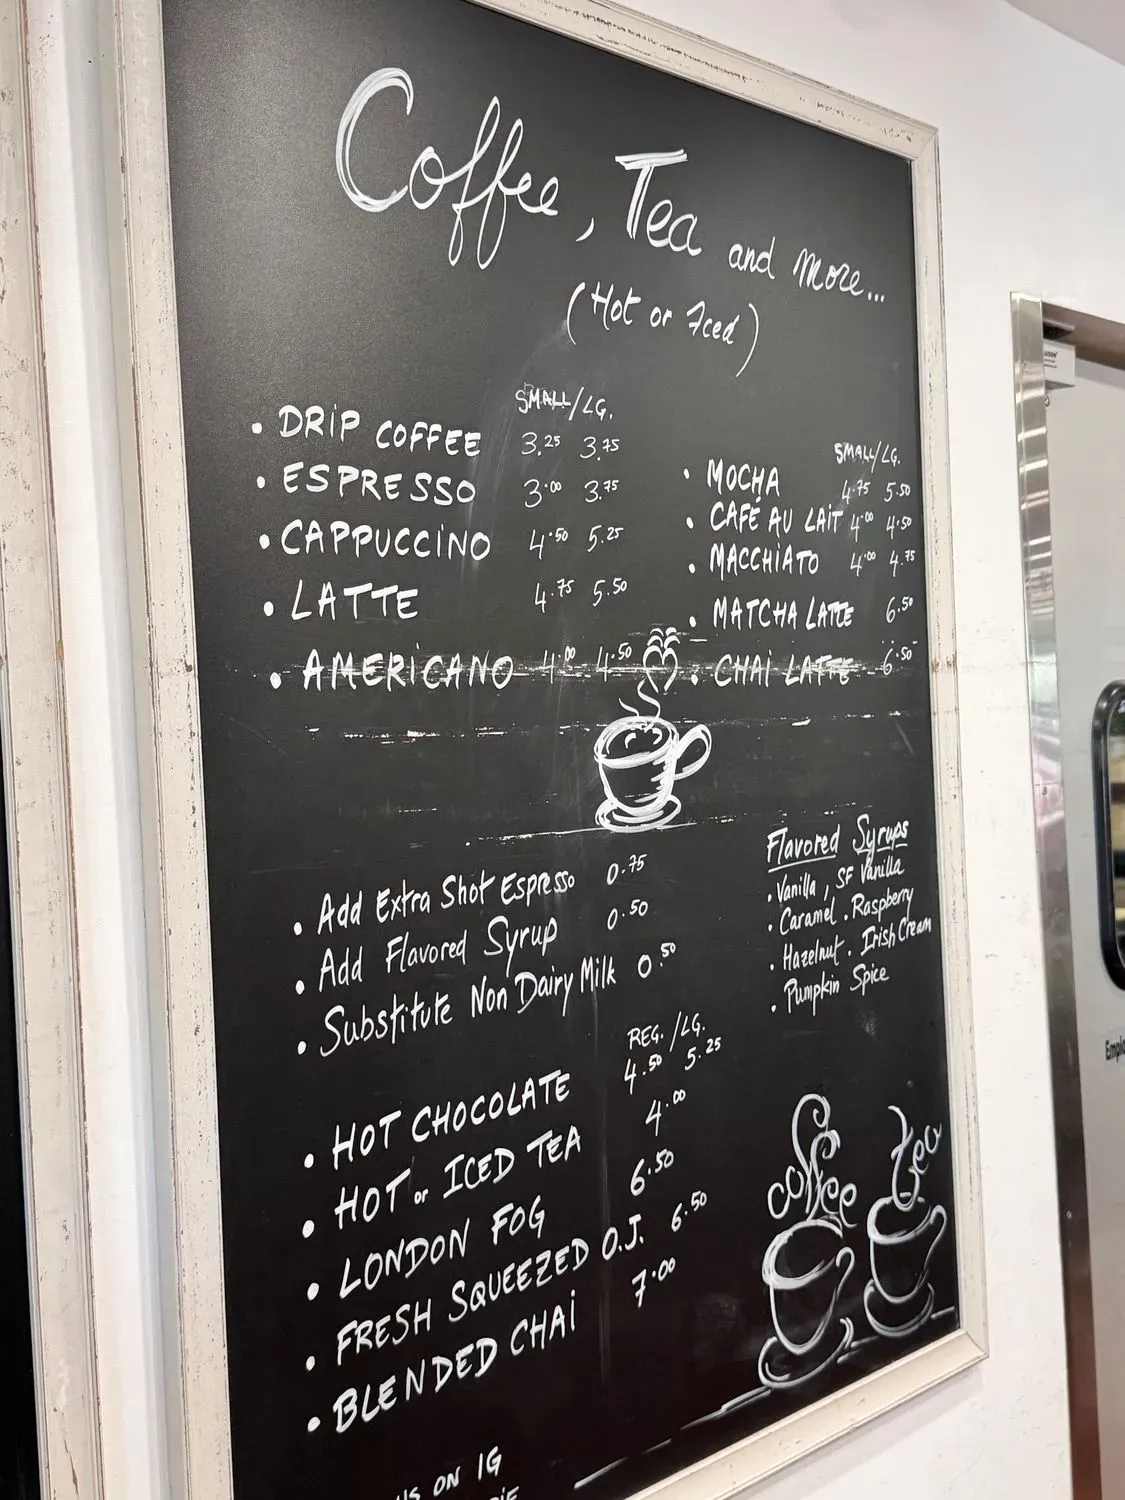 Coffee, Tea and more...
(Hot or Iced)
SMALL/LG.
• DRIP COFFEE 3.25 3.75
• ESPRESSO 3.00 3.75
• CAPPUCCINO 4.50 5.25
• LATTE 4.75 5.50
• AMERICANO 4.00 4.50
SMALL/LG.
• MOCHA 4.75 5.50
• CAFÉ AU LAIT 4.00 4.50
• MACCHIATO 4.00 4.75
• MATCHA LATTE 6.50
• CHAI LATTE 6.50
• Add Extra Shot Espresso 0.75
• Add Flavored Syrup 0.50
• Substitute Non Dairy Milk 0.50
Flavored Syrups
• Vanilla, SF Vanilla
• Caramel • Raspberry
• Hazelnut • Irish Cream
• Pumpkin Spice
REG./LG.
• HOT CHOCOLATE 4.50 5.25
• HOT or ICED TEA 4.00
• LONDON FOG 6.50
• FRESH SQUEEZED O.J. 6.50
• BLENDED CHAI 7.00
coffee
tea
ON IG